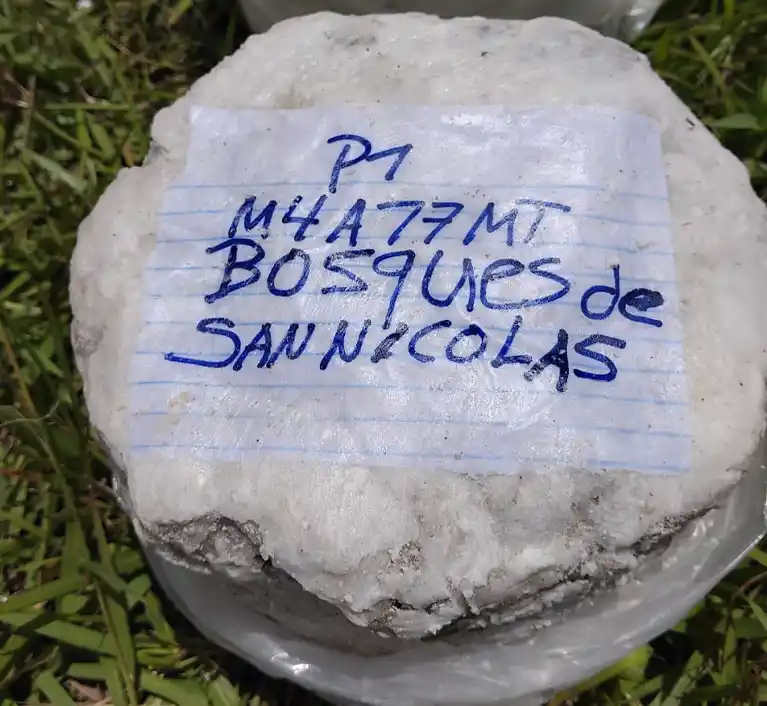 P1
M4A77MT
BOSques de
SANNICOLAS